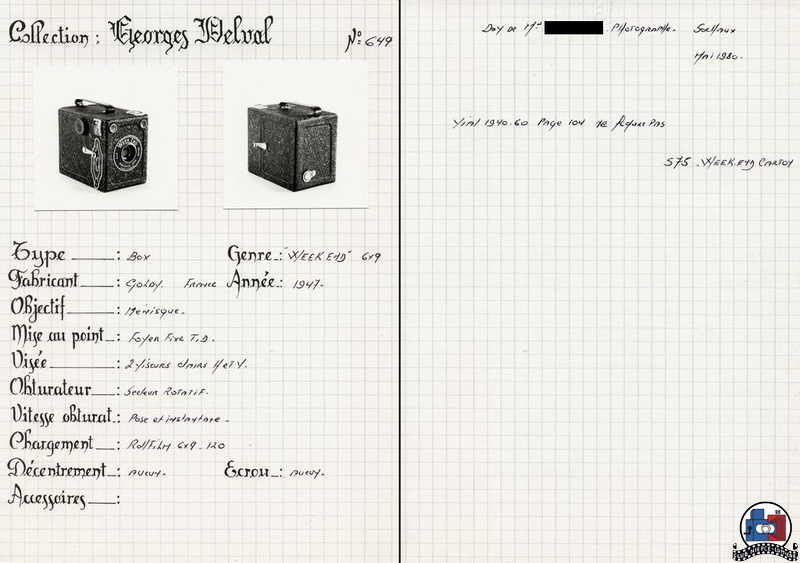 Collection : Georges Delval
No 649
Type : Box
Genre : "WEEK END" 6x9
Fabricant : Goldy. France
Année : 1947.
Objectif : Ménisque.
Mise au point : Foyer Fixe T.D.
Visée : 2 Viseurs clairs H et V.
Obturateur : Secteur Rotatif.
Vitesse obturat. : Pose et instantané.
Chargement : Roll Film 6x9 - 120
Décentrement : aucun.
Ecrou : aucun.
Accessoires :
Don de Mr Photographe. Sceaux
Mai 1980.
Vial 1940-60 Page 104 ne figure pas
S75 WEEK END CARTON